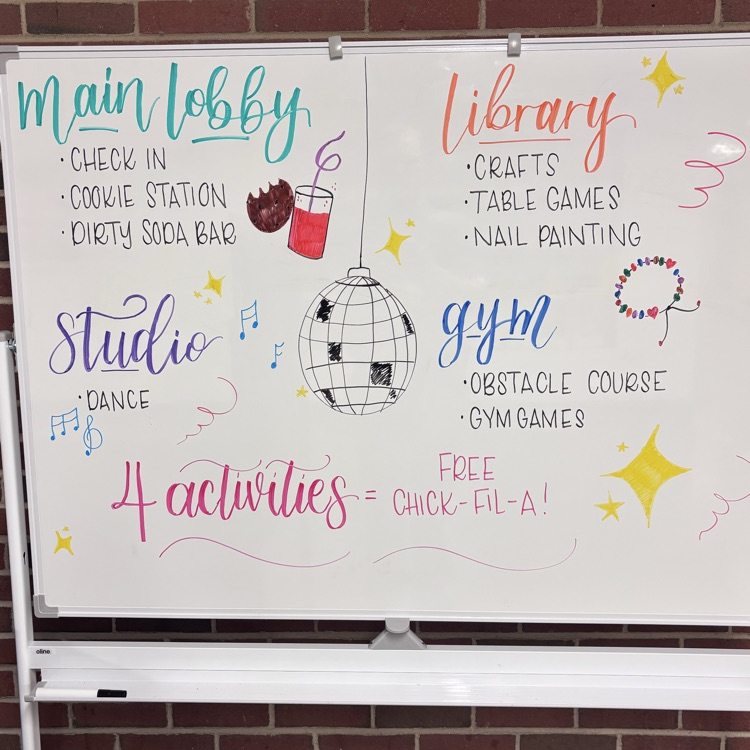 main lobby
· CHECK IN
· COOKIE STATION
· DIRTY SODA BAR
library
· CRAFTS
· TABLE GAMES
· NAIL PAINTING
studio
· DANCE
gym
· OBSTACLE COURSE
· GYM GAMES
4 activities = FREE
CHICK-FIL-A!
oline